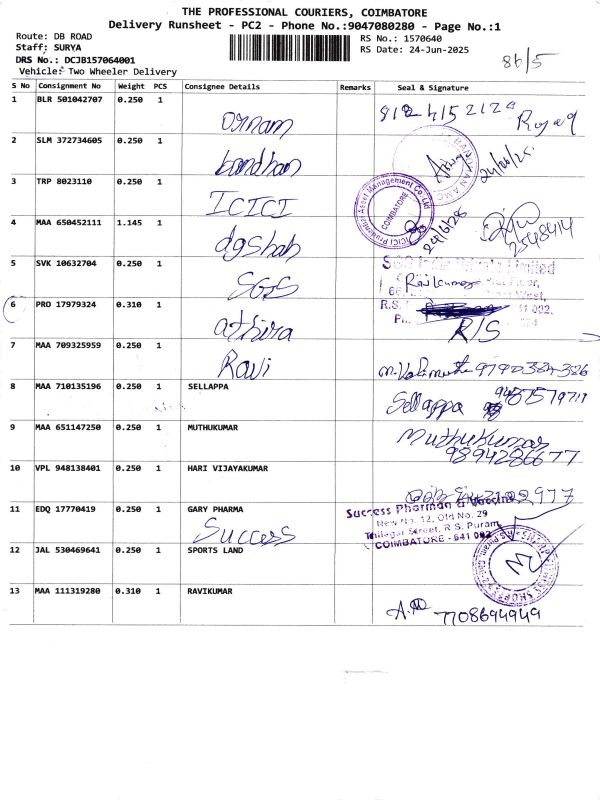 THE PROFESSIONAL COURIERS, COIMBATORE
Delivery Runsheet - PC2 - Phone No.:9047080280 - Page No.:1
Route: DB ROAD
Staff: SURYA
DRS No.: DCJB157064001
Vehicle: Two Wheeler Delivery
RS No.: 1570640
RS Date: 24-Jun-2025
86/5
S No Consignment No Weight PCS Consignee Details Remarks Seal & Signature
1 BLR 501042707 0.250 1
2 SLM 372734605 0.250 1 bandhan
24/6/25
3 TRP 8023110 0.250 1 ICICI
ICICI Prudential Asset Management Co Ltd
COIMBATORE
24/6/25
4 MAA 650452111 1.145 1 dgshah
5 SVK 10632704 0.250 1 SGS
Limited
6 PRO 17979324 0.310 1 athira
R.S.
R/S
7 MAA 709325959 0.250 1 Ravi
9790384326
8 MAA 710135196 0.250 1 SELLAPPA
Sellappa
9 MAA 651147250 0.250 1 MUTHUKUMAR
Muthukumar
9894286677
10 VPL 948138401 0.250 1 HARI VIJAYAKUMAR
11 EDQ 17770419 0.250 1 GARY PHARMA
Success
Success Pharman & Vaccine
New No. 12, Old No. 29
Street, R.S. Puram,
COIMBATORE - 641 002
12 JAL 530469641 0.250 1 SPORTS LAND
13 MAA 111319280 0.310 1 RAVIKUMAR
7708694949